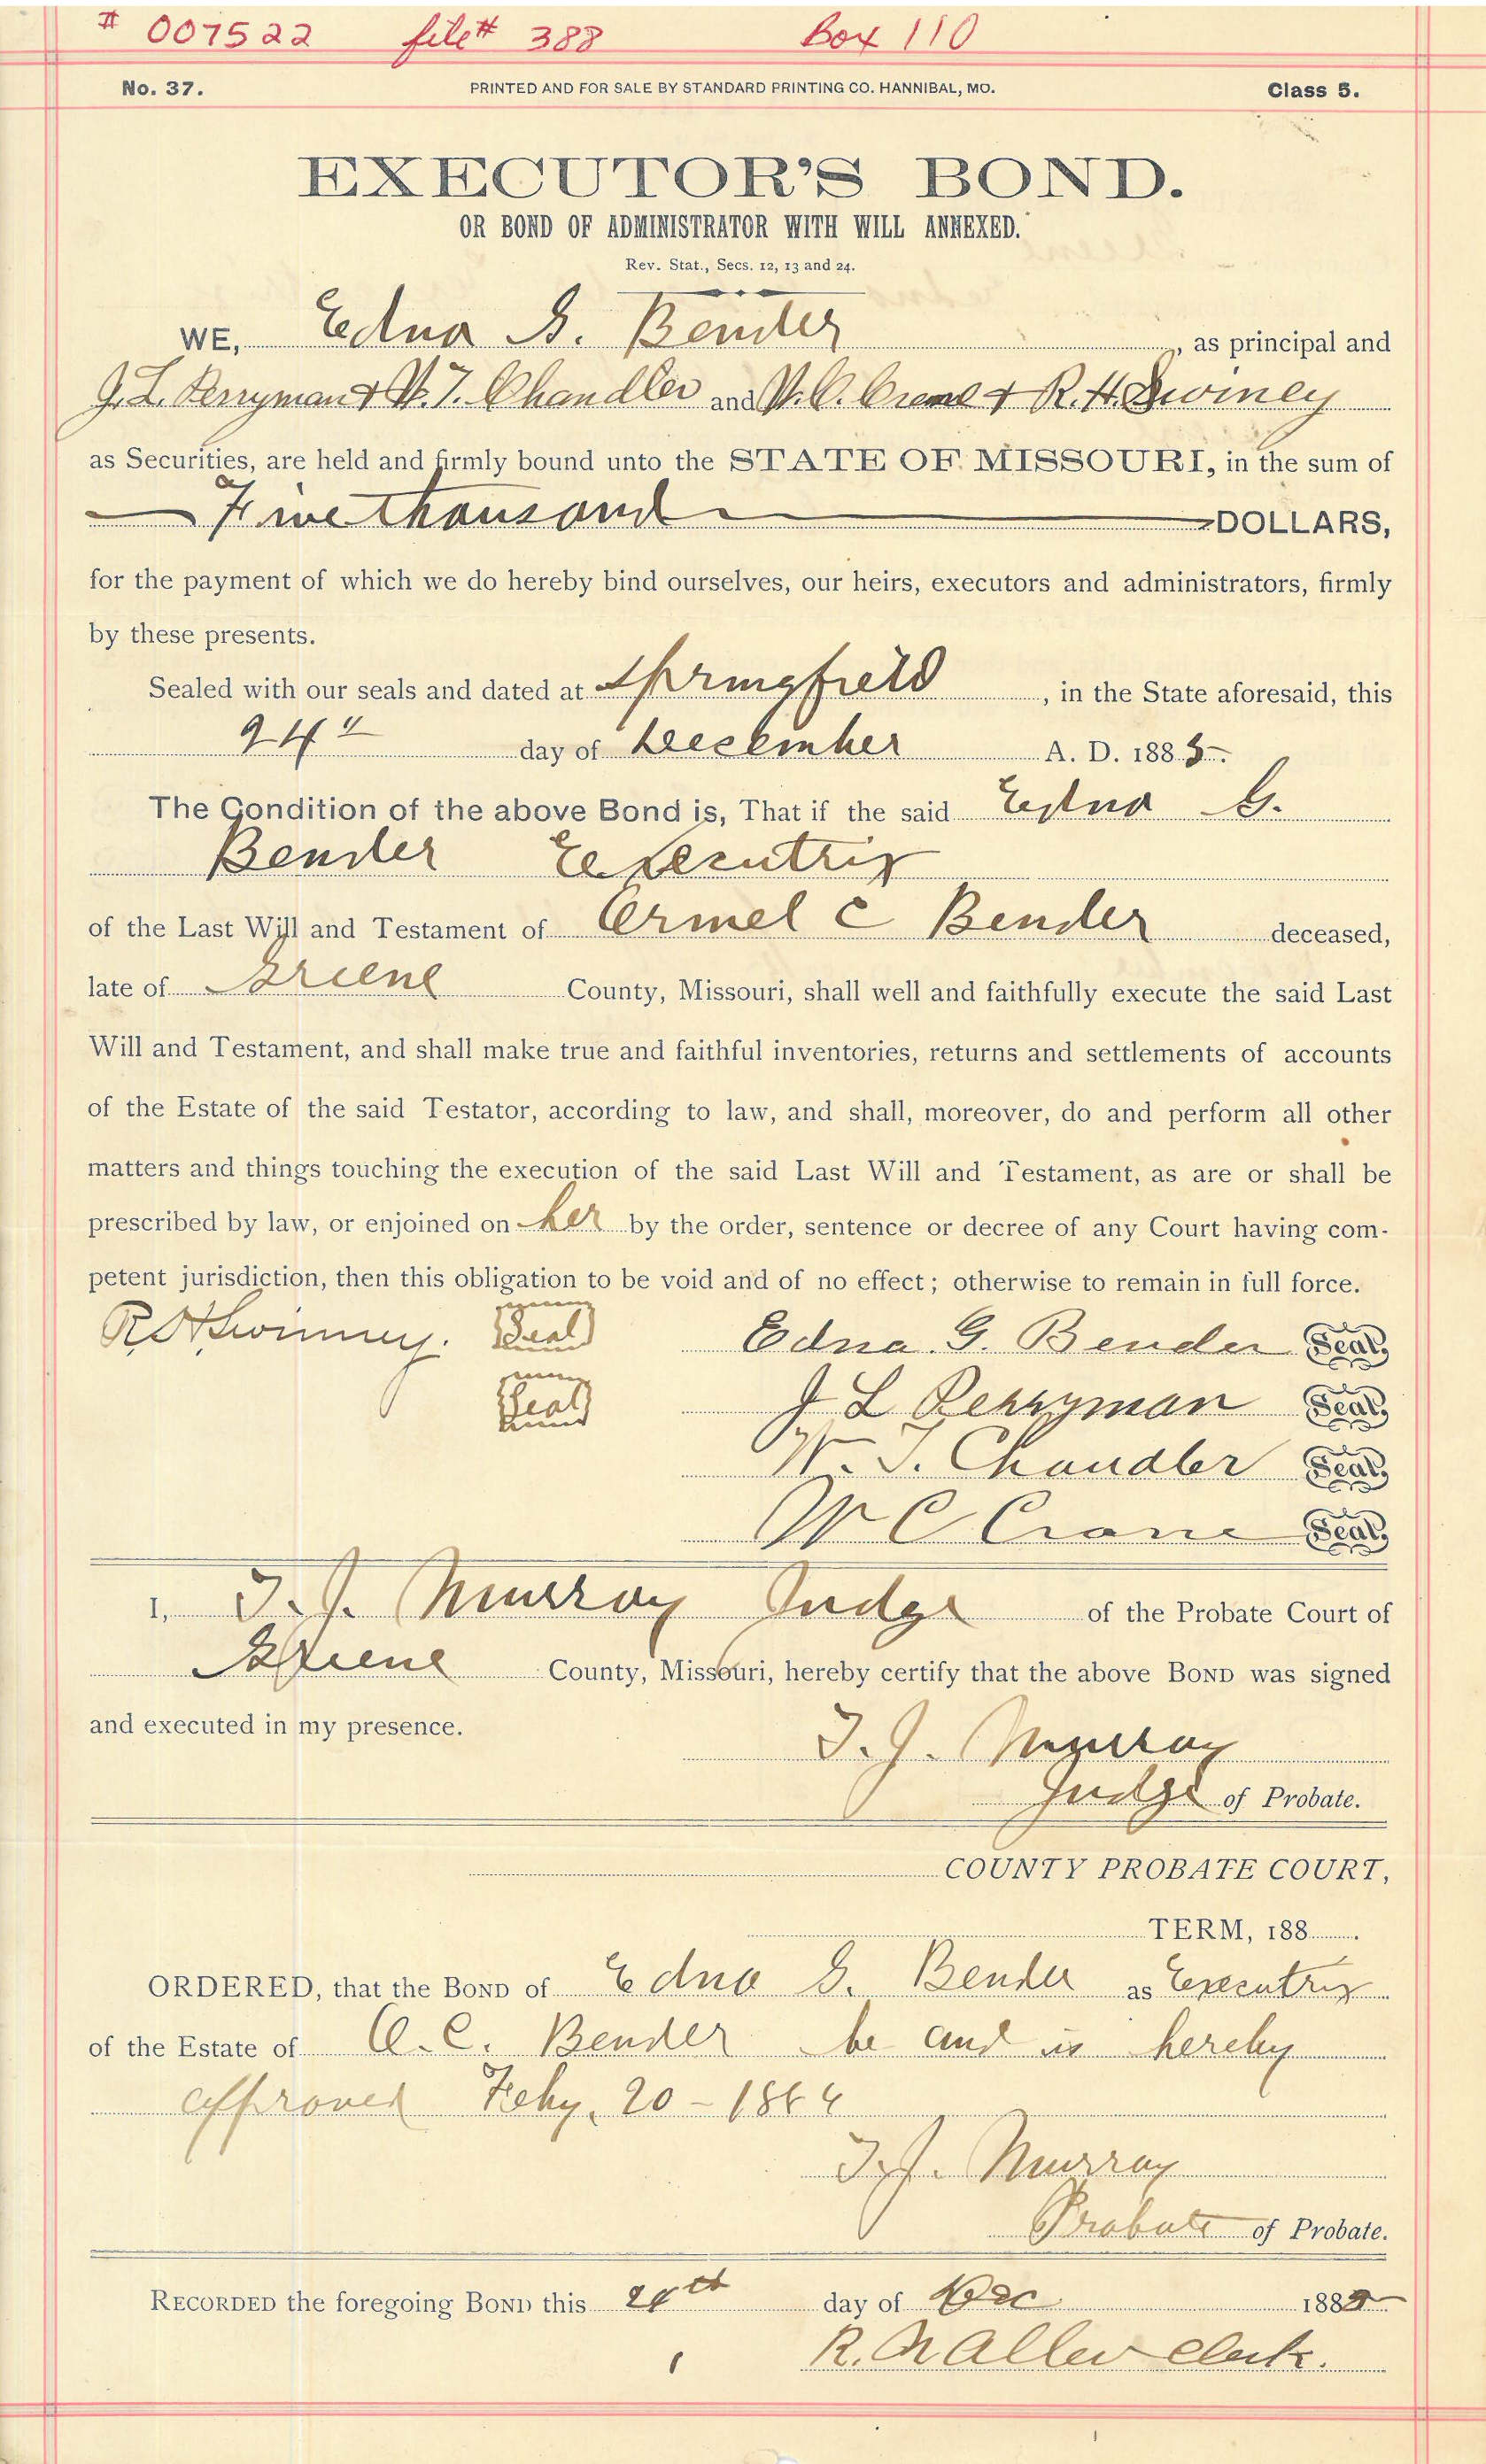 # 007522 file# 388 Box 110
No. 37. PRINTED AND FOR SALE BY STANDARD PRINTING CO. HANNIBAL, MO. Class 5.
EXECUTOR'S BOND.
OR BOND OF ADMINISTRATOR WITH WILL ANNEXED.
Rev. Stat., Secs. 12, 13 and 24.
WE, Edna G. Bender, as principal and
J. L. Perryman & W. T. Chandler and W. C. Crane & R. H. Swiney
as Securities, are held and firmly bound unto the STATE OF MISSOURI, in the sum of
Five thousand DOLLARS,
for the payment of which we do hereby bind ourselves, our heirs, executors and administrators, firmly
by these presents.
Sealed with our seals and dated at Springfield, in the State aforesaid, this
24" day of December A. D. 1885.
The Condition of the above Bond is, That if the said Edna G.
Bender Executrix
of the Last Will and Testament of Ormel C Bender deceased,
late of Greene County, Missouri, shall well and faithfully execute the said Last
Will and Testament, and shall make true and faithful inventories, returns and settlements of accounts
of the Estate of the said Testator, according to law, and shall, moreover, do and perform all other
matters and things touching the execution of the said Last Will and Testament, as are or shall be
prescribed by law, or enjoined on her by the order, sentence or decree of any Court having com-
petent jurisdiction, then this obligation to be void and of no effect; otherwise to remain in full force.
R H Swinney. Seal Edna. G. Bender Seal
Seal J L Perryman Seal
W. T. Chandler Seal
W C Crane Seal
I, T. J. Murray Judge of the Probate Court of
Greene County, Missouri, hereby certify that the above BOND was signed
and executed in my presence.
T. J. Murray
Judge of Probate.
COUNTY PROBATE COURT,
TERM, 188 .
ORDERED, that the BOND of Edna G. Bender as Executrix
of the Estate of O. C. Bender be and is hereby
approved Feby. 20 - 1886
T. J. Murray
Probate of Probate.
RECORDED the foregoing BOND this 24th day of Dec 1885
R. N Allen Clerk.